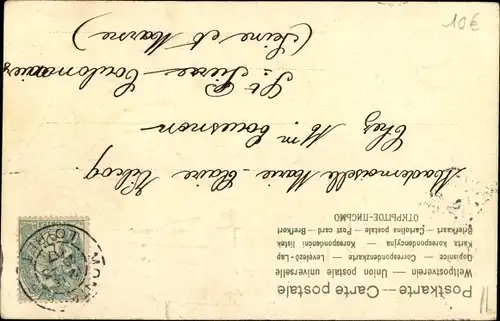 Postkarte — Carte postale
Weltpostverein — Union postale universelle
Dopisnice — Correspondenzkarte — Levelező-Lap
Karta korespondencyjna — Korespondenční lístek
Briefkaart — Cartolina postale — Post card — Brefkort
ОТКРЫТОЕ-ПИСЬМО
Mademoiselle Marie-Claire
Chez Mm
St
(Seine et Marne)
10€